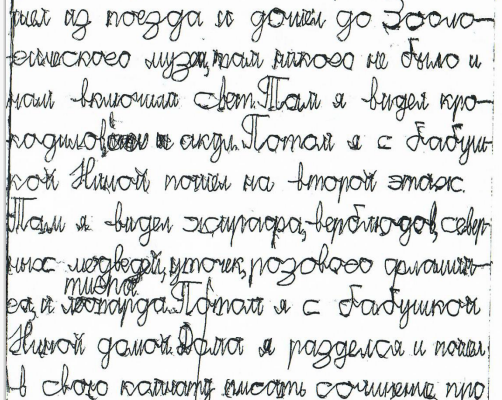 шел из поезда и дошёл до Зооло-
гического музея, там никого не было и
нам включили свет. Там я видел кро-
кодилов и акул. Потом я с бабуш-
кой Ниной пошёл на второй этаж.
Там я видел жирафа, верблюдов, север-
ных медведей, уточек, розового фламин-
тигра
го, и леопарда. Потом я с бабушкой
Ниной домой. Дома я разделся и пошёл
в свою комнату писать сочинение про